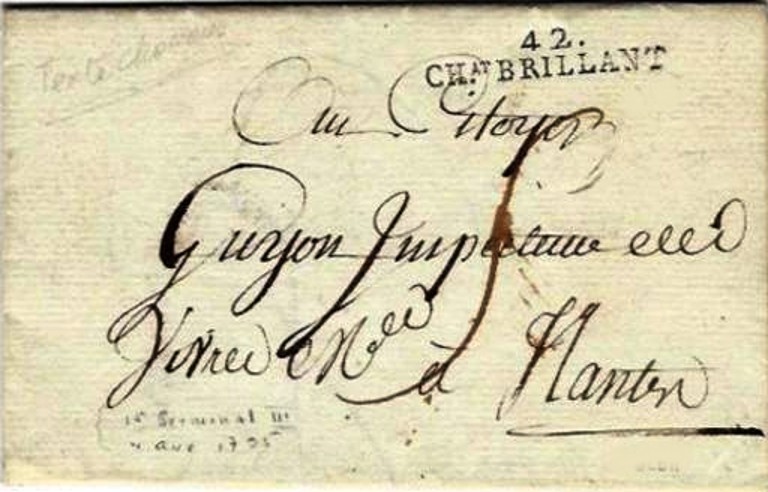 42.
CH.AT BRILLANT
Texte chouan
Au Citoyen
Guryon Inspecteur des
Vivres Mres à Nantes
15 Germinal III
4 avr 1795